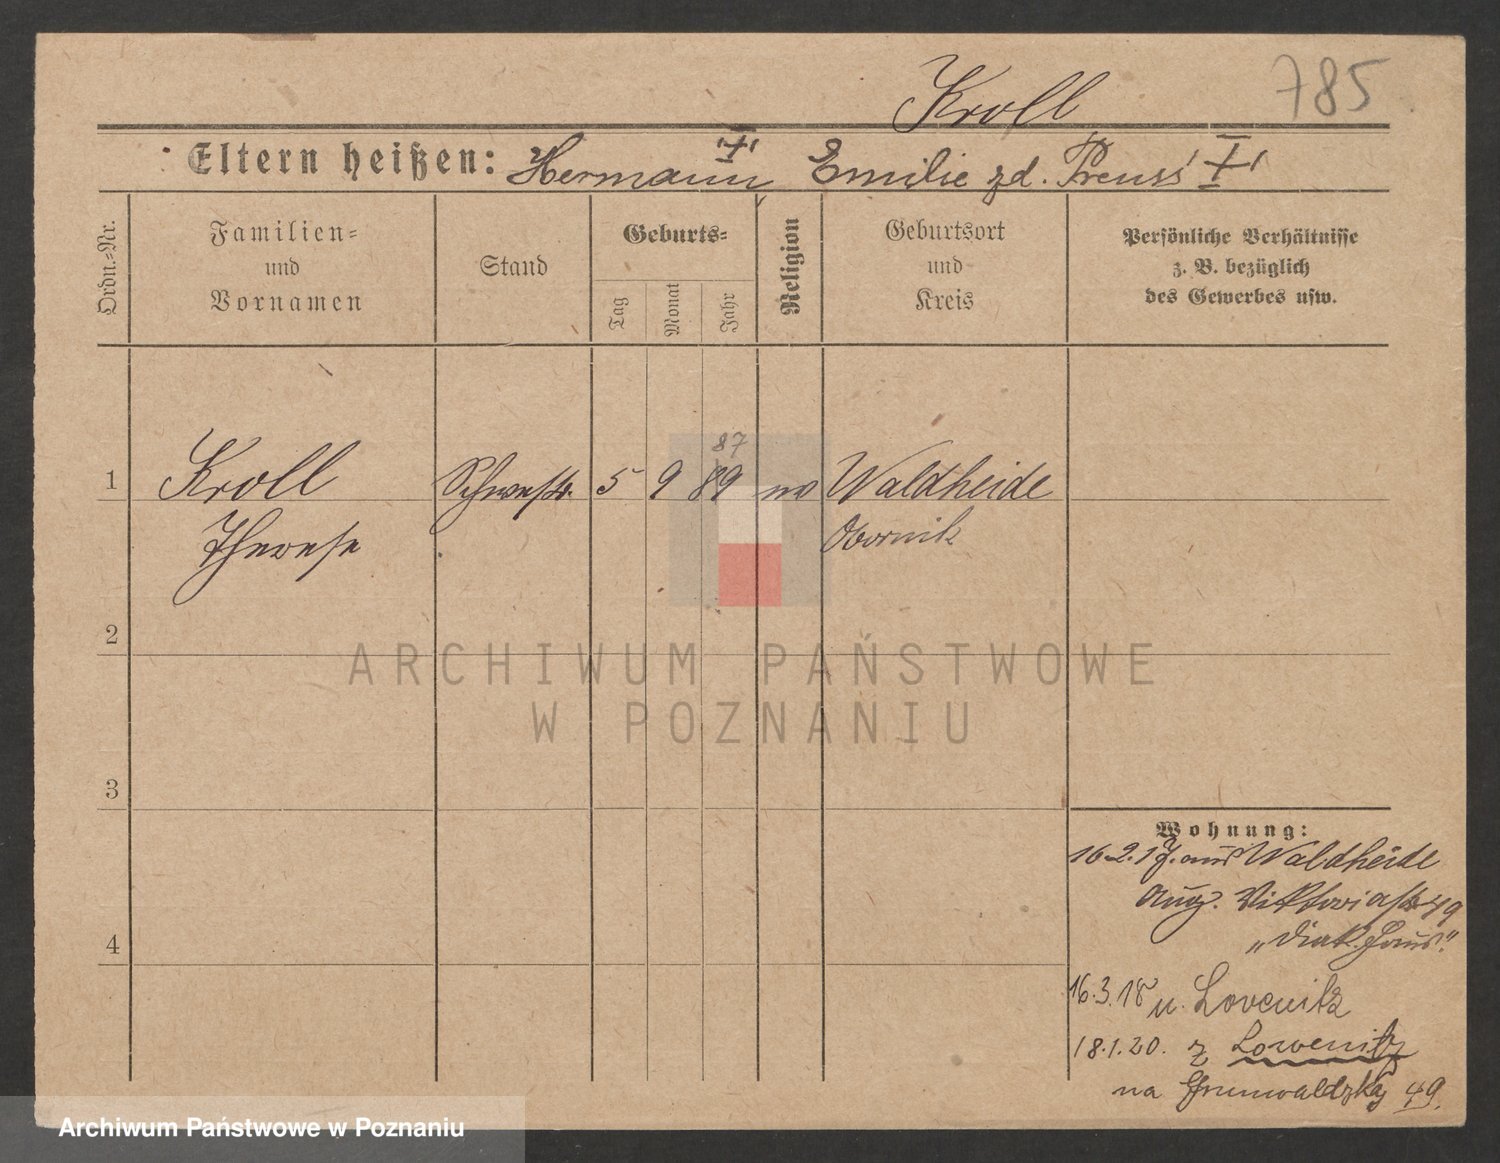 785
Kroll
Eltern heißen: Hermann Emilie zd. Preuss
Ordn.-Nr.
Familien-
und
Vornamen
Stand
Geburts-
Tag
Monat
Jahr
Religion
Geburtsort
und
Kreis
Persönliche Verhältnisse
z. B. bezüglich
des Gewerbes usw.
87
1 Kroll Schwestr. 5 9 89 ev Waldheide
Therese Obornik
2
3
4
Wohnung:
16.2.17. aus Waldheide
Aug. Viktoriastr 49
„Diak. Haus"
16.3.18 n. Lovenitz
18.1.20. z Lowenitz
na Grunwaldzką 49.
ARCHIWUM PAŃSTWOWE
W POZNANIU
Archiwum Państwowe w Poznaniu